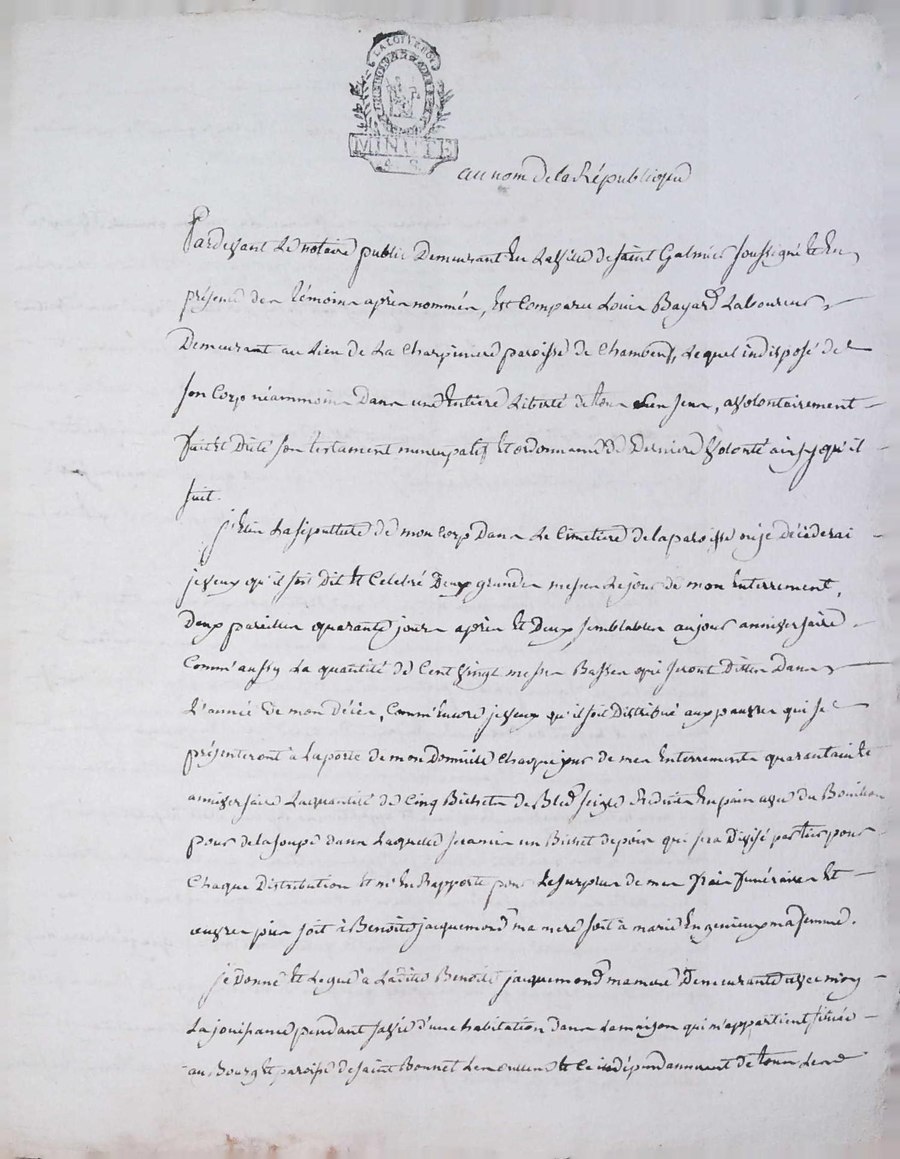 LA LOI ET LE ROI
MINUTE
au nom de la République
Pardevant Le notaire public Demeurant En La ville de saint Galmier soussigné Et En
présence des témoins après nommés, Est Comparu Louis Bayard Laboureur
Demeurant au Lieu de La Charpiniere paroisse de Chambeuf, Lequel indisposé de
son Corp néammoins Dans une Entiere Liberté de tous ses sens, a volontairement
fait et Dicté son testament nuncupatif Et ordonnance de Derniere volonté ainsy qu'il
suit.
j'Elis La sépulture de mon Corp Dans Le Cimetiere de la paroisse ou je décéderai
je veux qu'il soit Dit Et Celebré Deux grandes messes Le jour de mon Enterrement,
Deux pareilles quarante jours après Et Deux semblables au jour anniversaire
Comm'aussy La quantité de Cent vingt messes Basses qui seront Dittes Dans
L'année de mon Décès, Comm'Encore je veux qu'il soit Distribué aux pauvres qui se
présenteront à La porte de mon Domicile Chaque jour de mes Enterrements quarantaine Et
anniversaire La quantité de Cinq Bichets de Bled seigle Réduits En pain avec du Bouillon
pour de la soupe dans Laquelle sera mis un Bichet de pois qui sera Divisé par tier pour
Chaque Distribution Et m'En Rapporte pour Le surplus de mes frais funéraires Et
œuvres pies soit à Benoîte jacquemond ma mere soit à marie Engenieux ma femme.
je Donne Et Legue à Ladite Benoîte jacquemond ma mere Demeurante avec moy
La jouissance pendant sa vie d'une habitation dans La maison qui m'appartient située
au Bourg Et paroisse de saint Bonnet Les oulles Et Ce indépendamment de tous Les